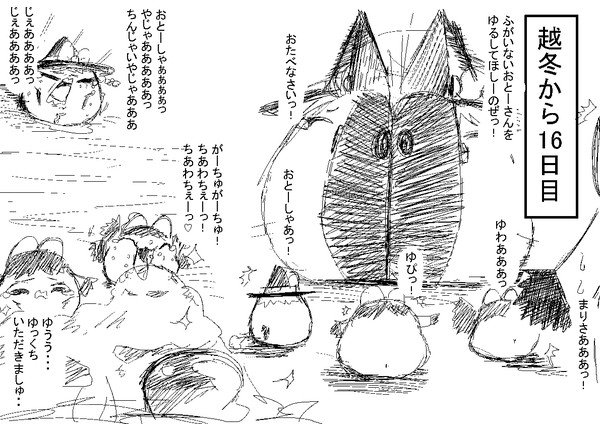 越冬から16日目
ふがいないおとーさんを
ゆるしてほしーのぜっ!
おたべなさいっ!
おとーしゃぁぁぁぁっ
やじゃあああああっ
ちんじゃいやじゃあああ
じぇああああっ
じぇぁあああぁっ
ゆわああああっ
まりさあああっ!
ゆぴっ!
おとーしゃあっ!
がーちゅがーちゅ!
ちあわちぇーっ!
ちあわちぇーっ♡
ゆうう・・
ゆっくち
いただきましゅ・・